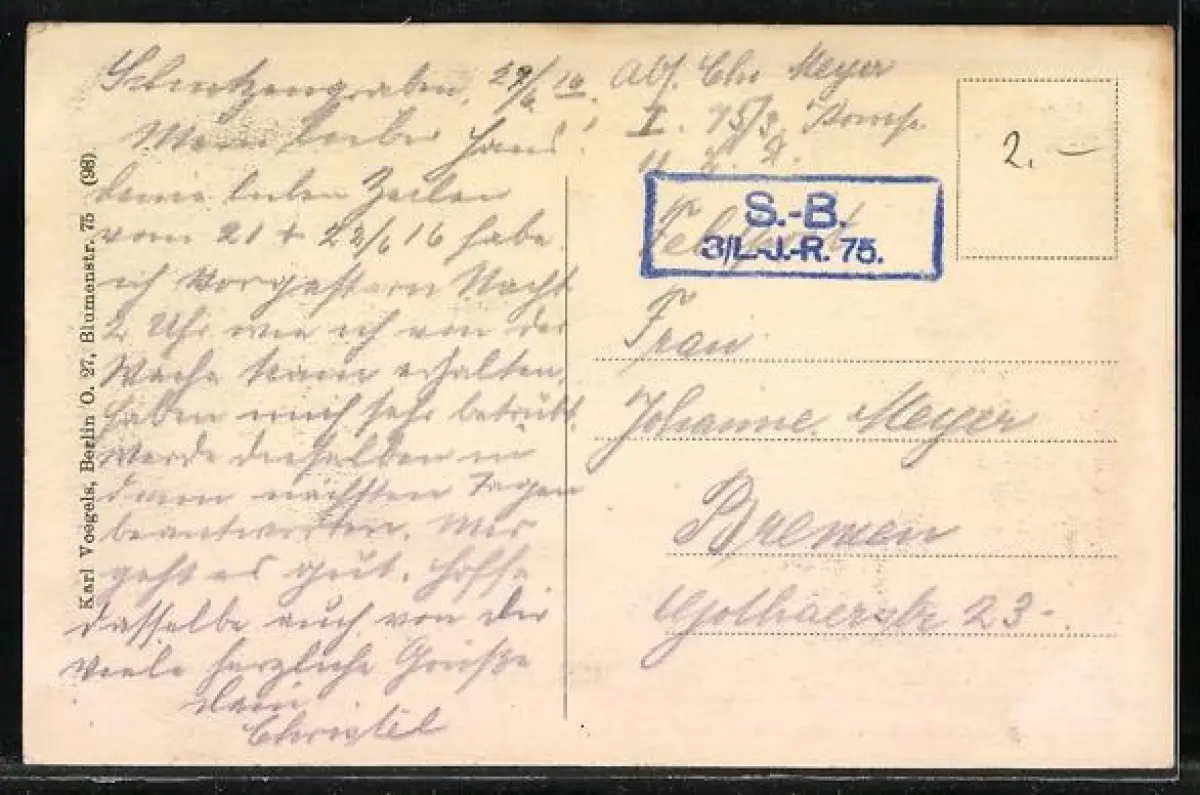 Schützengraben, 27/6 16.
Mein lieber Hans!
deine lieben Zeilen
vom 21 + 22/6 16 habe
ich Vorgestern Nacht
2 Uhr wie ich von der
Wache kam erhalten,
haben mich sehr betrübt.
Werde dieselben in
den nächsten Tagen
beantworten. Mir
geht es gut, hoffe
dasselbe auch von dir
Viele herzliche Grüße
dein
Christel
Abs. Chr. Meyer
I. 75/3. Komp.
Feldpost
S.-B.
3/L.-J.-R. 75.
2. –
Frau
Johanne Meyer
Bremen
Gothaerstr 23.
Karl Voegels, Berlin O. 27, Blumenstr. 75 (98)